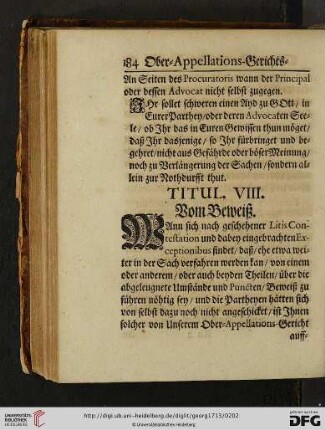 184 Ober-Appellations-Gerichts-
An Seiten des Procuratoris wann der Principal
oder dessen Advocat nicht selbst zugegen.
IHr sollet schweren einen Ayd zu GOtt / in
Eurer Parthey / oder deren Advocaten See-
le / ob Ihr das in Euren Gewissen thun möget /
daß Ihr dasjenige / so Ihr fürbringet und be-
gehret / nicht aus Gefährde oder böser Meinung /
noch zu Verlängerung der Sachen / sondern al-
lein zur Nothdurfft thut.
TITUL. VIII.
Vom Beweiß.
WAnn sich nach geschehener Litis Con-
testation und dabey eingebrachten Ex-
ceptionibus findet / daß / ehe etwa wei-
ter in der Sach verfahren werden kan / von einem
oder anderem / oder auch beyden Theilen / über die
abgeleugnete Umstände und Puncten / Beweiß zu
führen nöhtig sey / und die Partheyen hätten sich
von selbst dazu noch nicht angeschicket / ist Ihnen
solcher von Unserem Ober-Appellations-Gericht
auff-
http://digi.ub.uni-heidelberg.de/diglit/georg1713/0202
© Universitätsbibliothek Heidelberg
UNIVERSITÄTS-
BIBLIOTHEK
HEIDELBERG
gefördert durch die
DFG